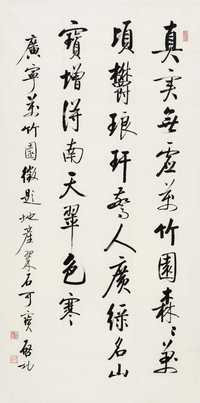 真实無虚萬竹園森〻萬
頃欝琅玕驚人廣綠名山
寶增得南天翠色寒
廣寧萬竹園徵題地產翠石可寶 啟功